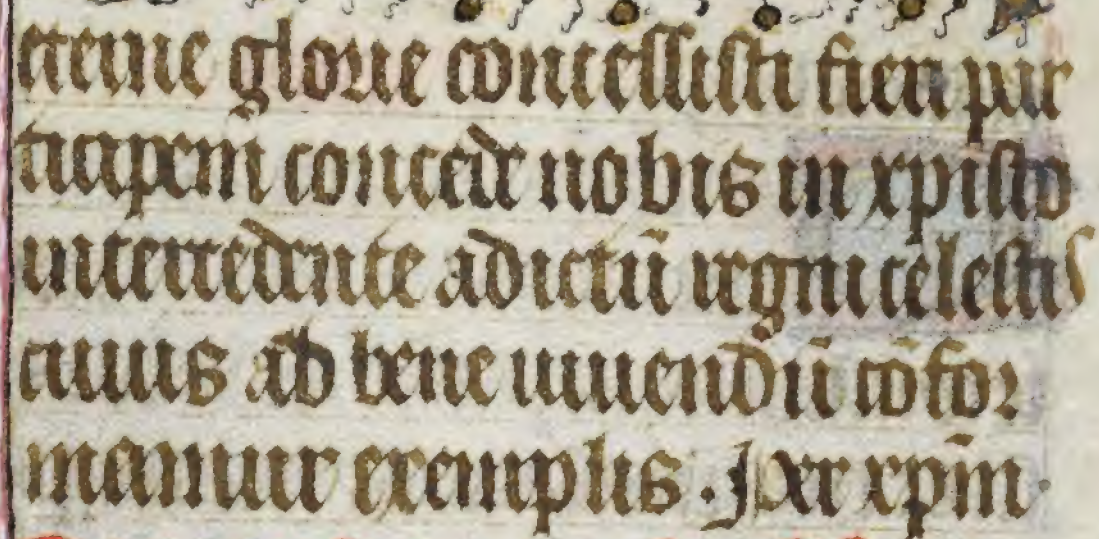 eterne glorie concessisti fieri par
ticipem concede nobis in xpisto
intercedente adictū regni celestis
cuius ad bene uiuendū cōfor
mamur exemplis. Per xp̄m.